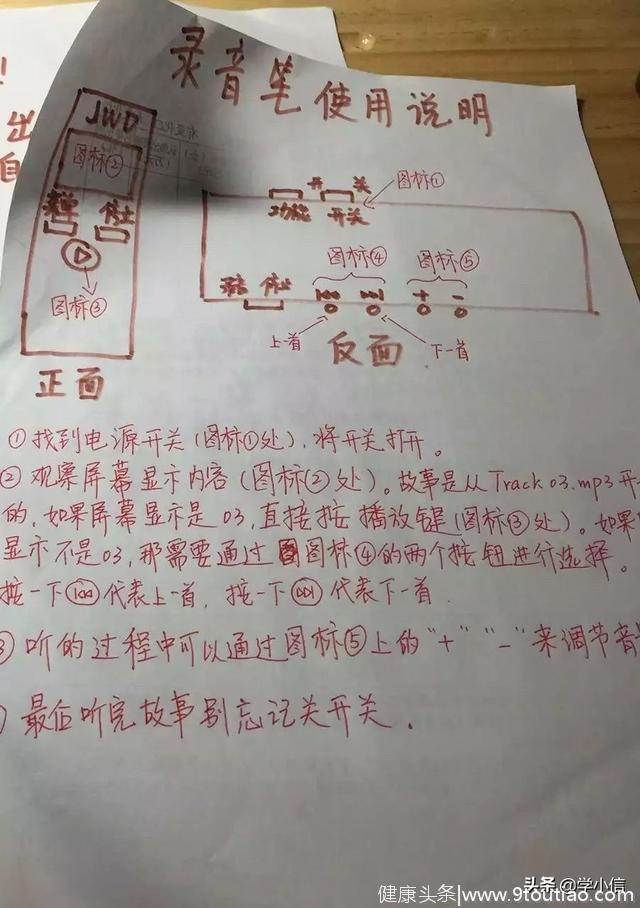 出
自
录音笔使用说明
JWD
图标②
录音 停止
图标③
正面
开 关
图标①
功能 开关
图标④ 图标⑤
录音 停止
+ -
上一首 反面 下一首
①找到电源开关(图标①处),将开关打开。
②观察屏幕显示内容(图标②处)。故事是从Track 03.mp3开
的,如果屏幕显示是03,直接按播放键(图标③处)。如果
显示不是03,那需要通过图标④的两个按钮进行选择。
按一下⏮代表上一首,按一下⏭代表下一首
听的过程中可以通过图标⑤上的"+" "-"来调节音
最后听完故事别忘记关开关.
头条@学小信
健康头条|www.9toutiao.com